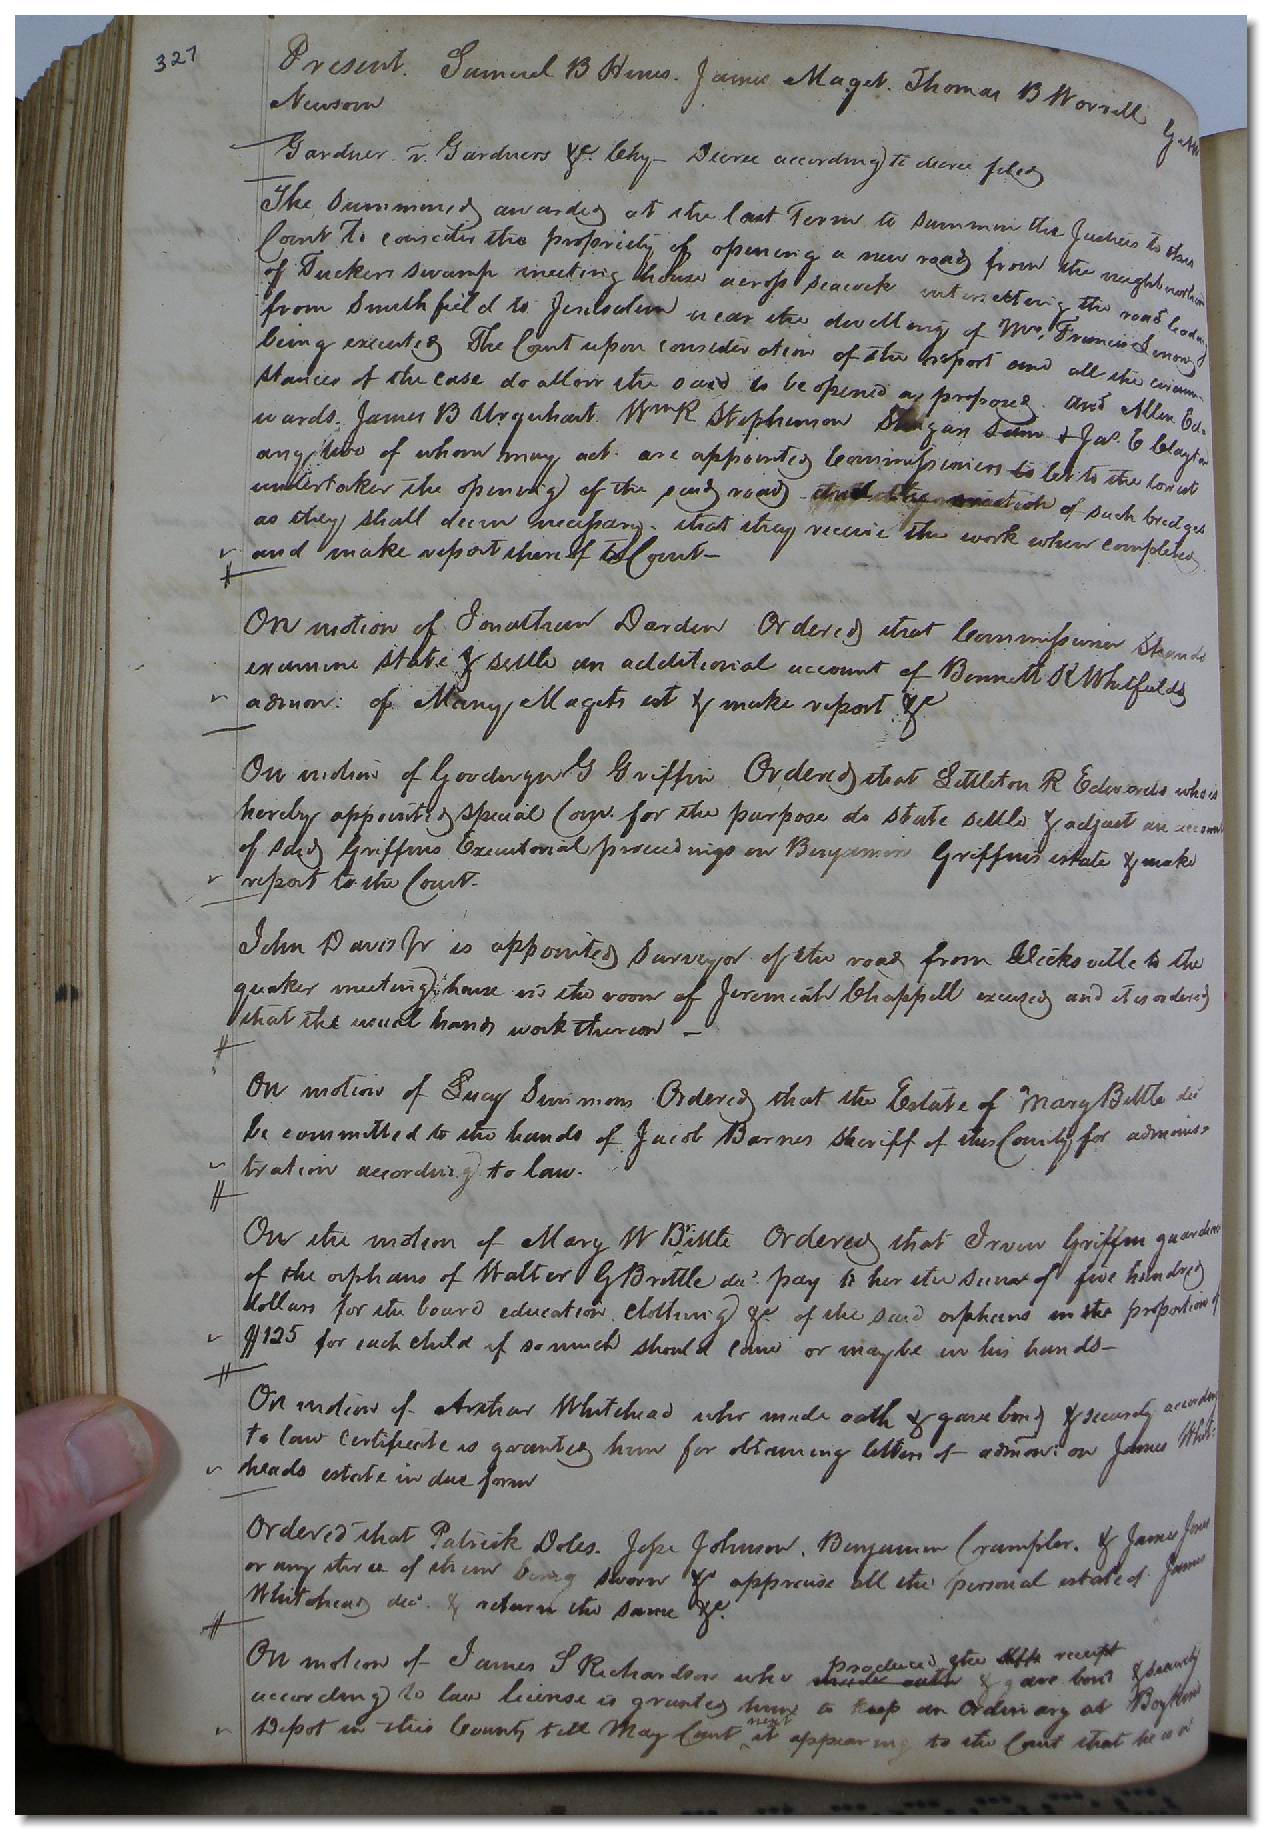 327
Present. Samuel B Hines. James Maget. Thomas B Worrell
Newsom
Gardner v. Gardners &c. Chy - Decree according to decree filed
The Summoned awarded at the last Term to summon the Justices to this
Court to consider the propriety of opening a new road from the
of Tuckers swamp meeting house across seacock intersecting the road leading
from Smithfield to Jerusalem near the dwelling of Mrs. Francis
being executed The Court upon consideration of the report and all the circum-
stances of the case do allow the said to be opened as proposed. and Allen Ed-
wards. James B Urquhart. Wm R Stephenson & Jas. E Clayton
any two of whom may act are appointed Commissioners to let to the lowest
undertaker the opening of the said road of such bridges
as they shall deem necessary. that they receive the work when completed
and make report thereof to Court-
On motion of Jonathan Darden Ordered that Commissioner
examine State & settle an additional account of Bennett R Whitfields
admon: of Mary Magets est & make report &c
On motion of Goodwyn G Griffin Ordered that Littleton R Edwards who is
hereby appointed special Com. for the purpose do state settle & adjust an account
of said Griffins Executorial proceedings on Benjamin Griffins estate & make
report to the Court.
John Davis Jr is appointed Surveyor of the road from to the
quaker meeting house in the room of Jeremiah Chappell excused and it is ordered
that the usual hands work thereon -
On motion of Lucy Simmons Ordered that the Estate of Mary Bittle dec
be committed to the hands of Jacob Barnes Sheriff of this County for adminis-
tration according to law.
On the motion of Mary W Bittle Ordered that Irvin Griffin guardian
of the orphans of Walter G Brittle decd. pay to her the sum of five hundred
dollars for the board education clothing &c. of the said orphans in the proportion of
$125 for each child if so much should come or maybe in his hands-
On motion of Arthur Whitehead who made oath & gave bond & security according
to law certificate is granted him for obtaining letters of admon: on James Whit-
heads estate in due form
Ordered that Patrick Doles. Jesse Johnson. Benjamin Crumpler. & James Jones
or any three of them being sworn &c appraise all the personal estate of James
Whitehead dec. & return the same &c.
On motion of James S Richardson who produced the receipt made oath & gave bond & security
according to law license is granted him to keep an Ordinary at Boykins
Depot in this County till May Court next it appearing to the Court that he is